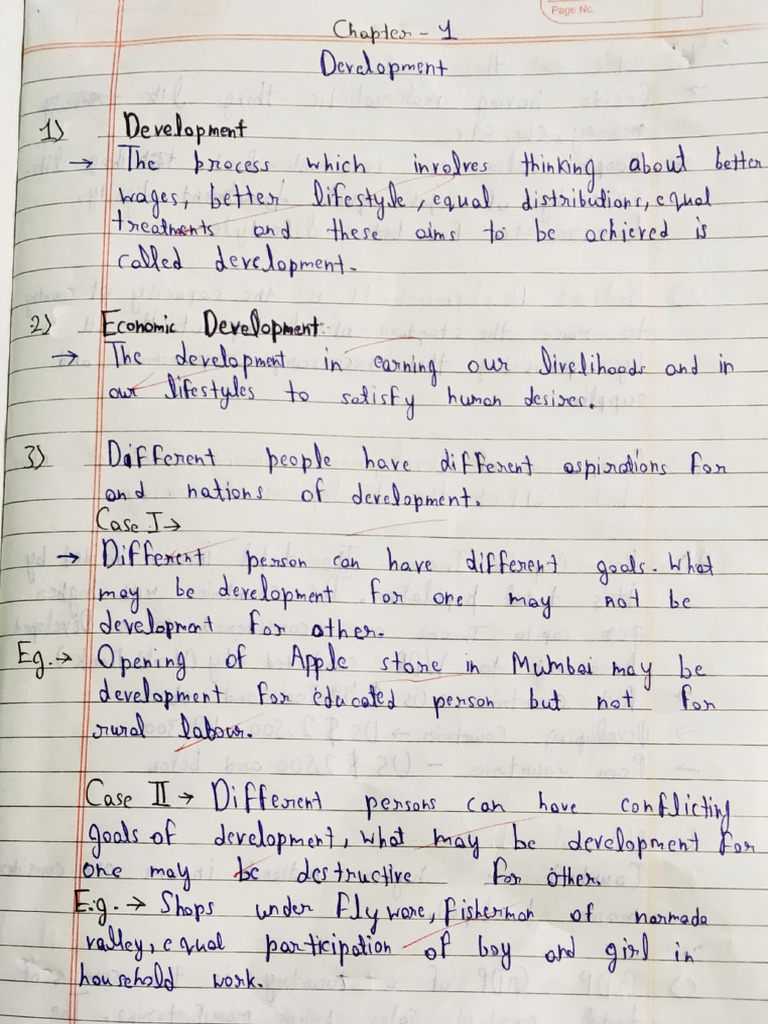 Page No.
Chapter - 1
Development
1) Development
→ The process which involves thinking about better
wages, better lifestyle, equal distributions, equal
treatments and these aims to be achieved is
called development.
2) Economic Development.
→ The development in earning our livelihoods and in
our lifestyles to satisfy human desires.
3) Different people have different aspirations for
and nations of development.
Case I →
→ Different person can have different goals. What
may be development for one may not be
development for other.
Eg. → Opening of Apple store in Mumbai may be
development for educated person but not for
rural labour.
Case II → Different persons can have conflicting
goals of development, what may be development for
one may be destructive for other.
E.g. → Shops under flyware, fisherman of narmada
valley, equal participation of boy and girl in
household work.